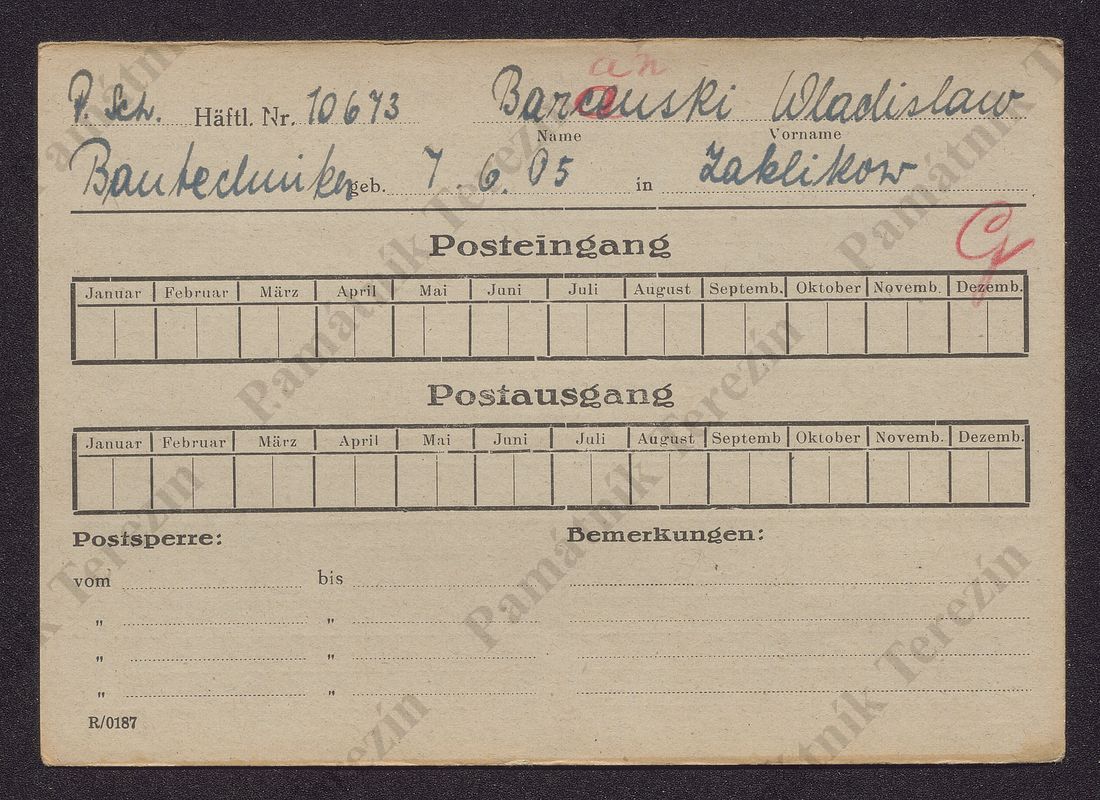 an
P. Sch. Häftl. Nr. 10673 Barcenski Wladislaw
Name Vorname
Bautechniker geb. 7. 6. 05 in Zaklikow
G
Posteingang
Januar Februar März April Mai Juni Juli August Septemb. Oktober Novemb. Dezemb.
Postausgang
Januar Februar März April Mai Juni Juli August Septemb Oktober Novemb. Dezemb.
Postsperre: Bemerkungen:
vom bis
" "
" "
" "
R/0187
Památník Terezín